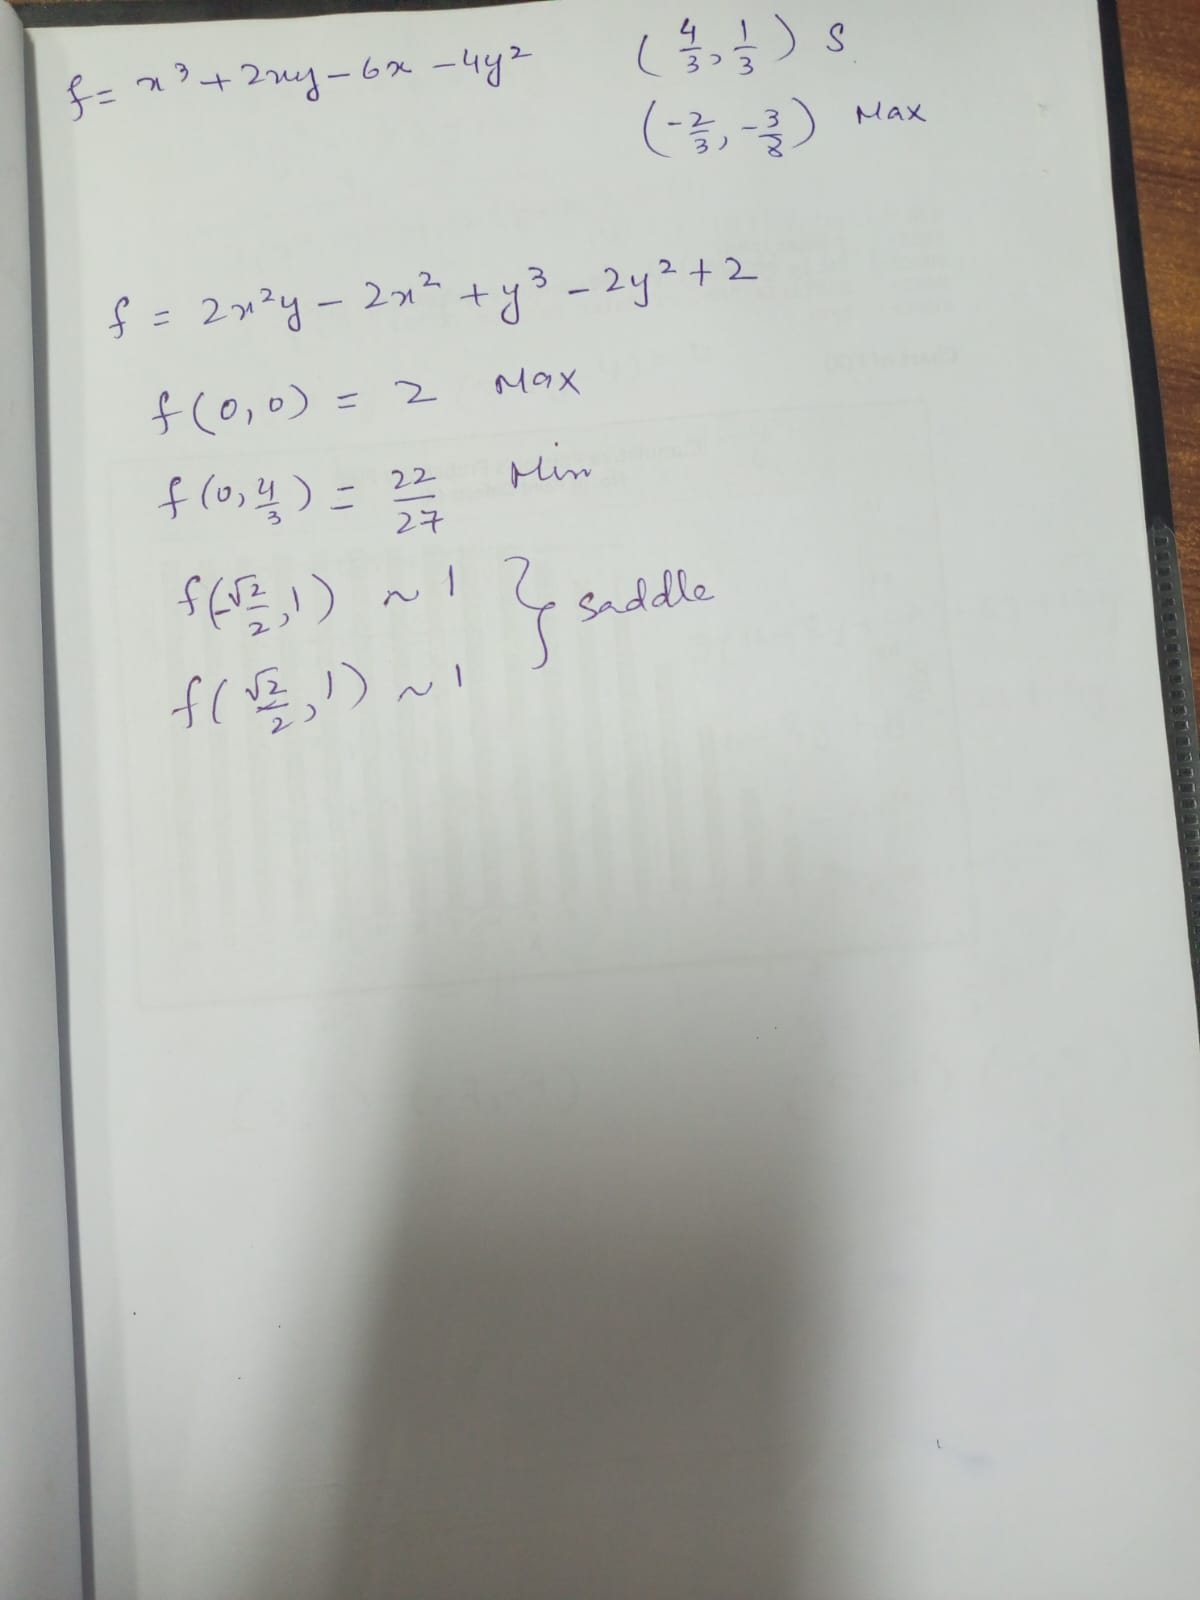 f = x³ + 2xy - 6x - 4y² (4/3, 1/3) S
(-2/3, -3/8) Max
f = 2x²y - 2x² + y³ - 2y² + 2
f(0,0) = 2 Max
f(0, 4/3) = 22/27 Min
f(-√2/2, 1) ~ 1 } saddle
f(√2/2, 1) ~ 1